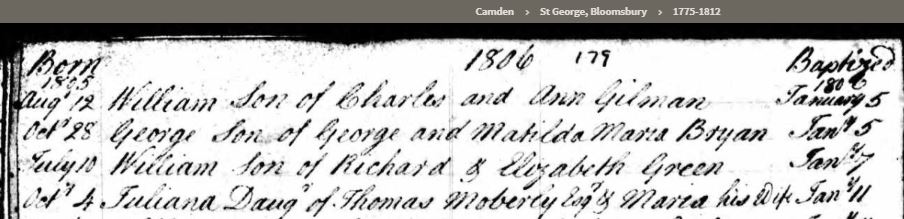 Camden › St George, Bloomsbury › 1775-1812
Born 1806 179 Baptized
1805 1806
Augt 12 William Son of Charles and Ann Gilman January 5
Octr 28 George Son of George and Matilda Maria Bryan Jany 5
July 10 William Son of Richard & Elizabeth Green Jany 7
Octr 4 Juliana Daugr of Thomas Moberly Esqr & Maria his Wife Jany 11